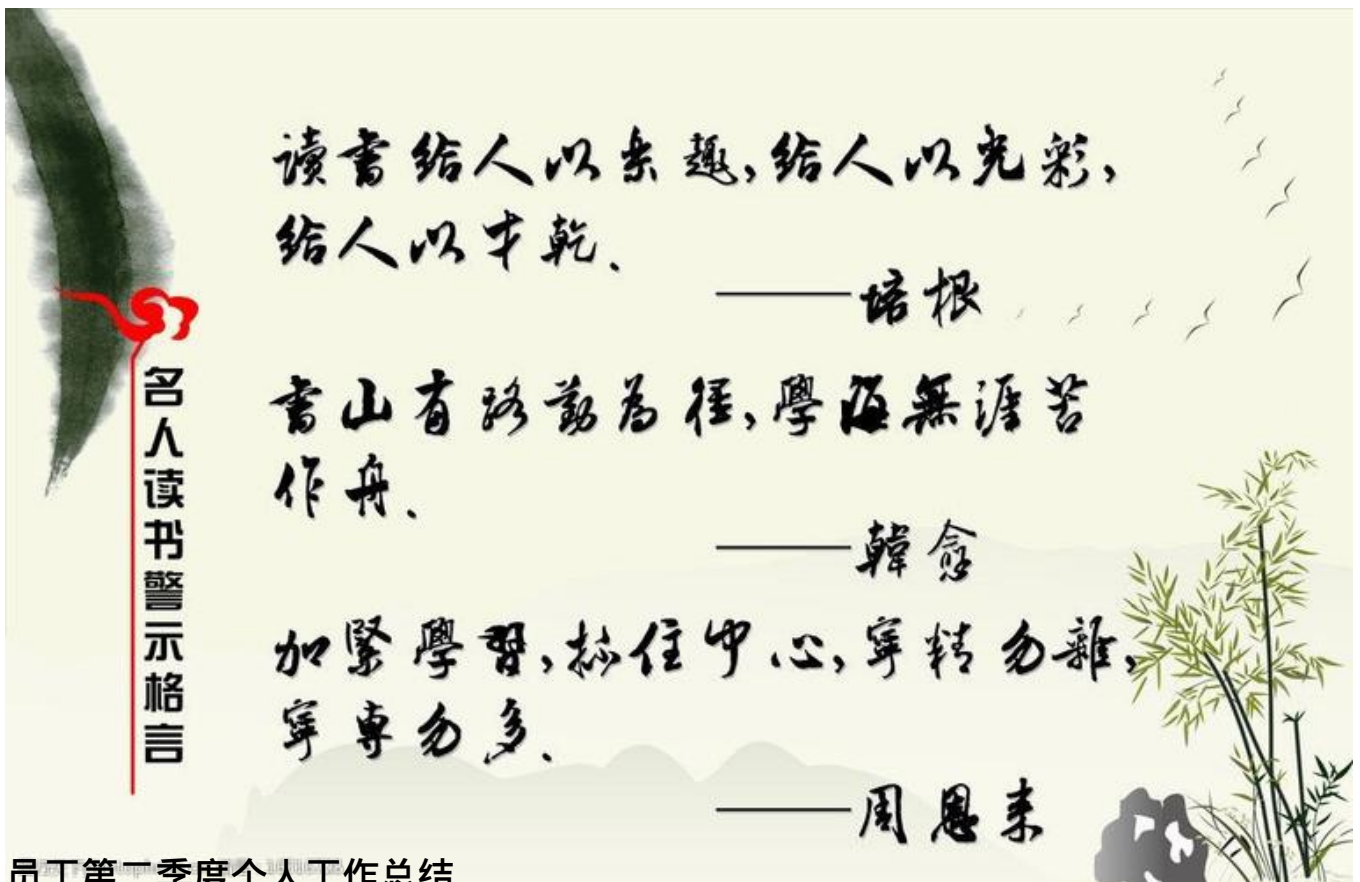 名人读书警示格言
讀書給人以樂趣,給人以光彩,
給人以才乾.
——培根
書山有路勤為徑,學海無涯苦
作舟.
——韓愈
加緊學習,抓住中心,寧精勿雜,
寧專勿多.
——周恩来
员工第二季度个人工作总结